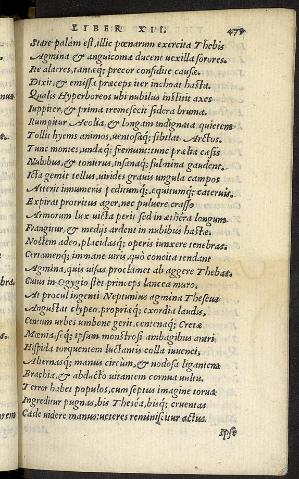 LIBER XII. 479
Stare palàm est, illic pœnarum exercita Thebis
Agmina & anguicomæ ducent uexilla sorores.
Ite alacres, tantæq; precor confidite causæ.
Dixit, & emissa præceps iter inchoat hasta.
Qualis Hyperboreos ubi nubilus institit axes
Iuppiter, & prima tremefecit sidera bruma.
Rumpitur Aeolia, & longam indignata quietem
Tollit hyems animos, uentosaq; sibilat Arctos.
Tunc montes, undæq; fremunt: tunc prælia cæsis
Nubibus, & tonitrus, insanaq; fulmina gaudent.
Icta gemit tellus, uirides grauis ungula campos
Atterit innumeris peditumq; equitumq; cateruis.
Expirat protritus ager, nec puluere crasso
Armorum lux uicta perit sed in æthera longum
Frangitur, & medijs ardent in nubibus hastæ.
Noctem adeo, placidasq; operis iunxere tenebras.
Certamenq; immane uiris, quò concita tendant
Agmina, quis uisas proclamet ab aggere Thebas,
Cuius in Ogygio stet princeps lancea muro.
At procul ingenti Neptunius agmina Theseus
Angustat clypeo, propriæq; exordia laudis,
Centum urbes umbone gerit, centenaq; Cretæ
Mœnia, seq; ipsum monstrosi ambagibus antri
Hispida torquentem luctantis colla iuuenci,
Alternasq; manus circùm, & nodosa ligantem
Brachia, & abducto uitantem cornua uultu.
Terror habet populos, cum septus imagine torua
Ingreditur pugnas, bis Thesea, bisq; cruentas
Cæde uidere manus: ueteres reminiscitur actus
Ipse